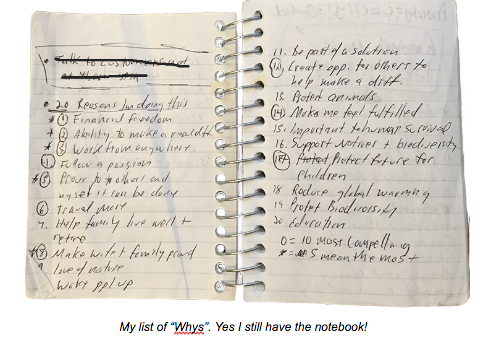 Talk to customers
20 Reasons Im doing this
* ① Financial freedom
* ② Ability to make a real diff.
* ③ Work from anywhere.
④ Follow a passion
* ⑤ Prove to others and
myself it can be done
⑥ Travel more
7. Help family live well +
retire
* ⑧ Make wife + family proud
9 love of nature
Wake ppl up
11. Be part of a solution
⑫ Create opp. for others to
help make a diff.
13. Protect animals
⑭ Make me feel fulfilled
15. Important to human survival
16. Support Natives + biodiversity
⑰ Protect Protect future for
children
18 Reduce global warming
19 Protect Biodiversity
20 Education
O = 10 most Compelling
* = 5 mean the most
My list of “Whys”. Yes I still have the notebook!